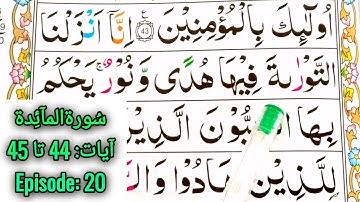 اُولٰٓئِكَ بِالْمُؤْمِنِيْنَ ﴿43﴾ اِنَّاۤ اَنْزَلْنَا
التَّوْرٰىةَ فِيْهَا هُدًى وَّنُوْرٌ ۚ يَحْكُمُ
بِهَا الَّذِيْنَ
لِلَّذِيْنَ هَادُوْا
سُورۃالمآئِدة
آیات: 44 تا 45
Episode: 20